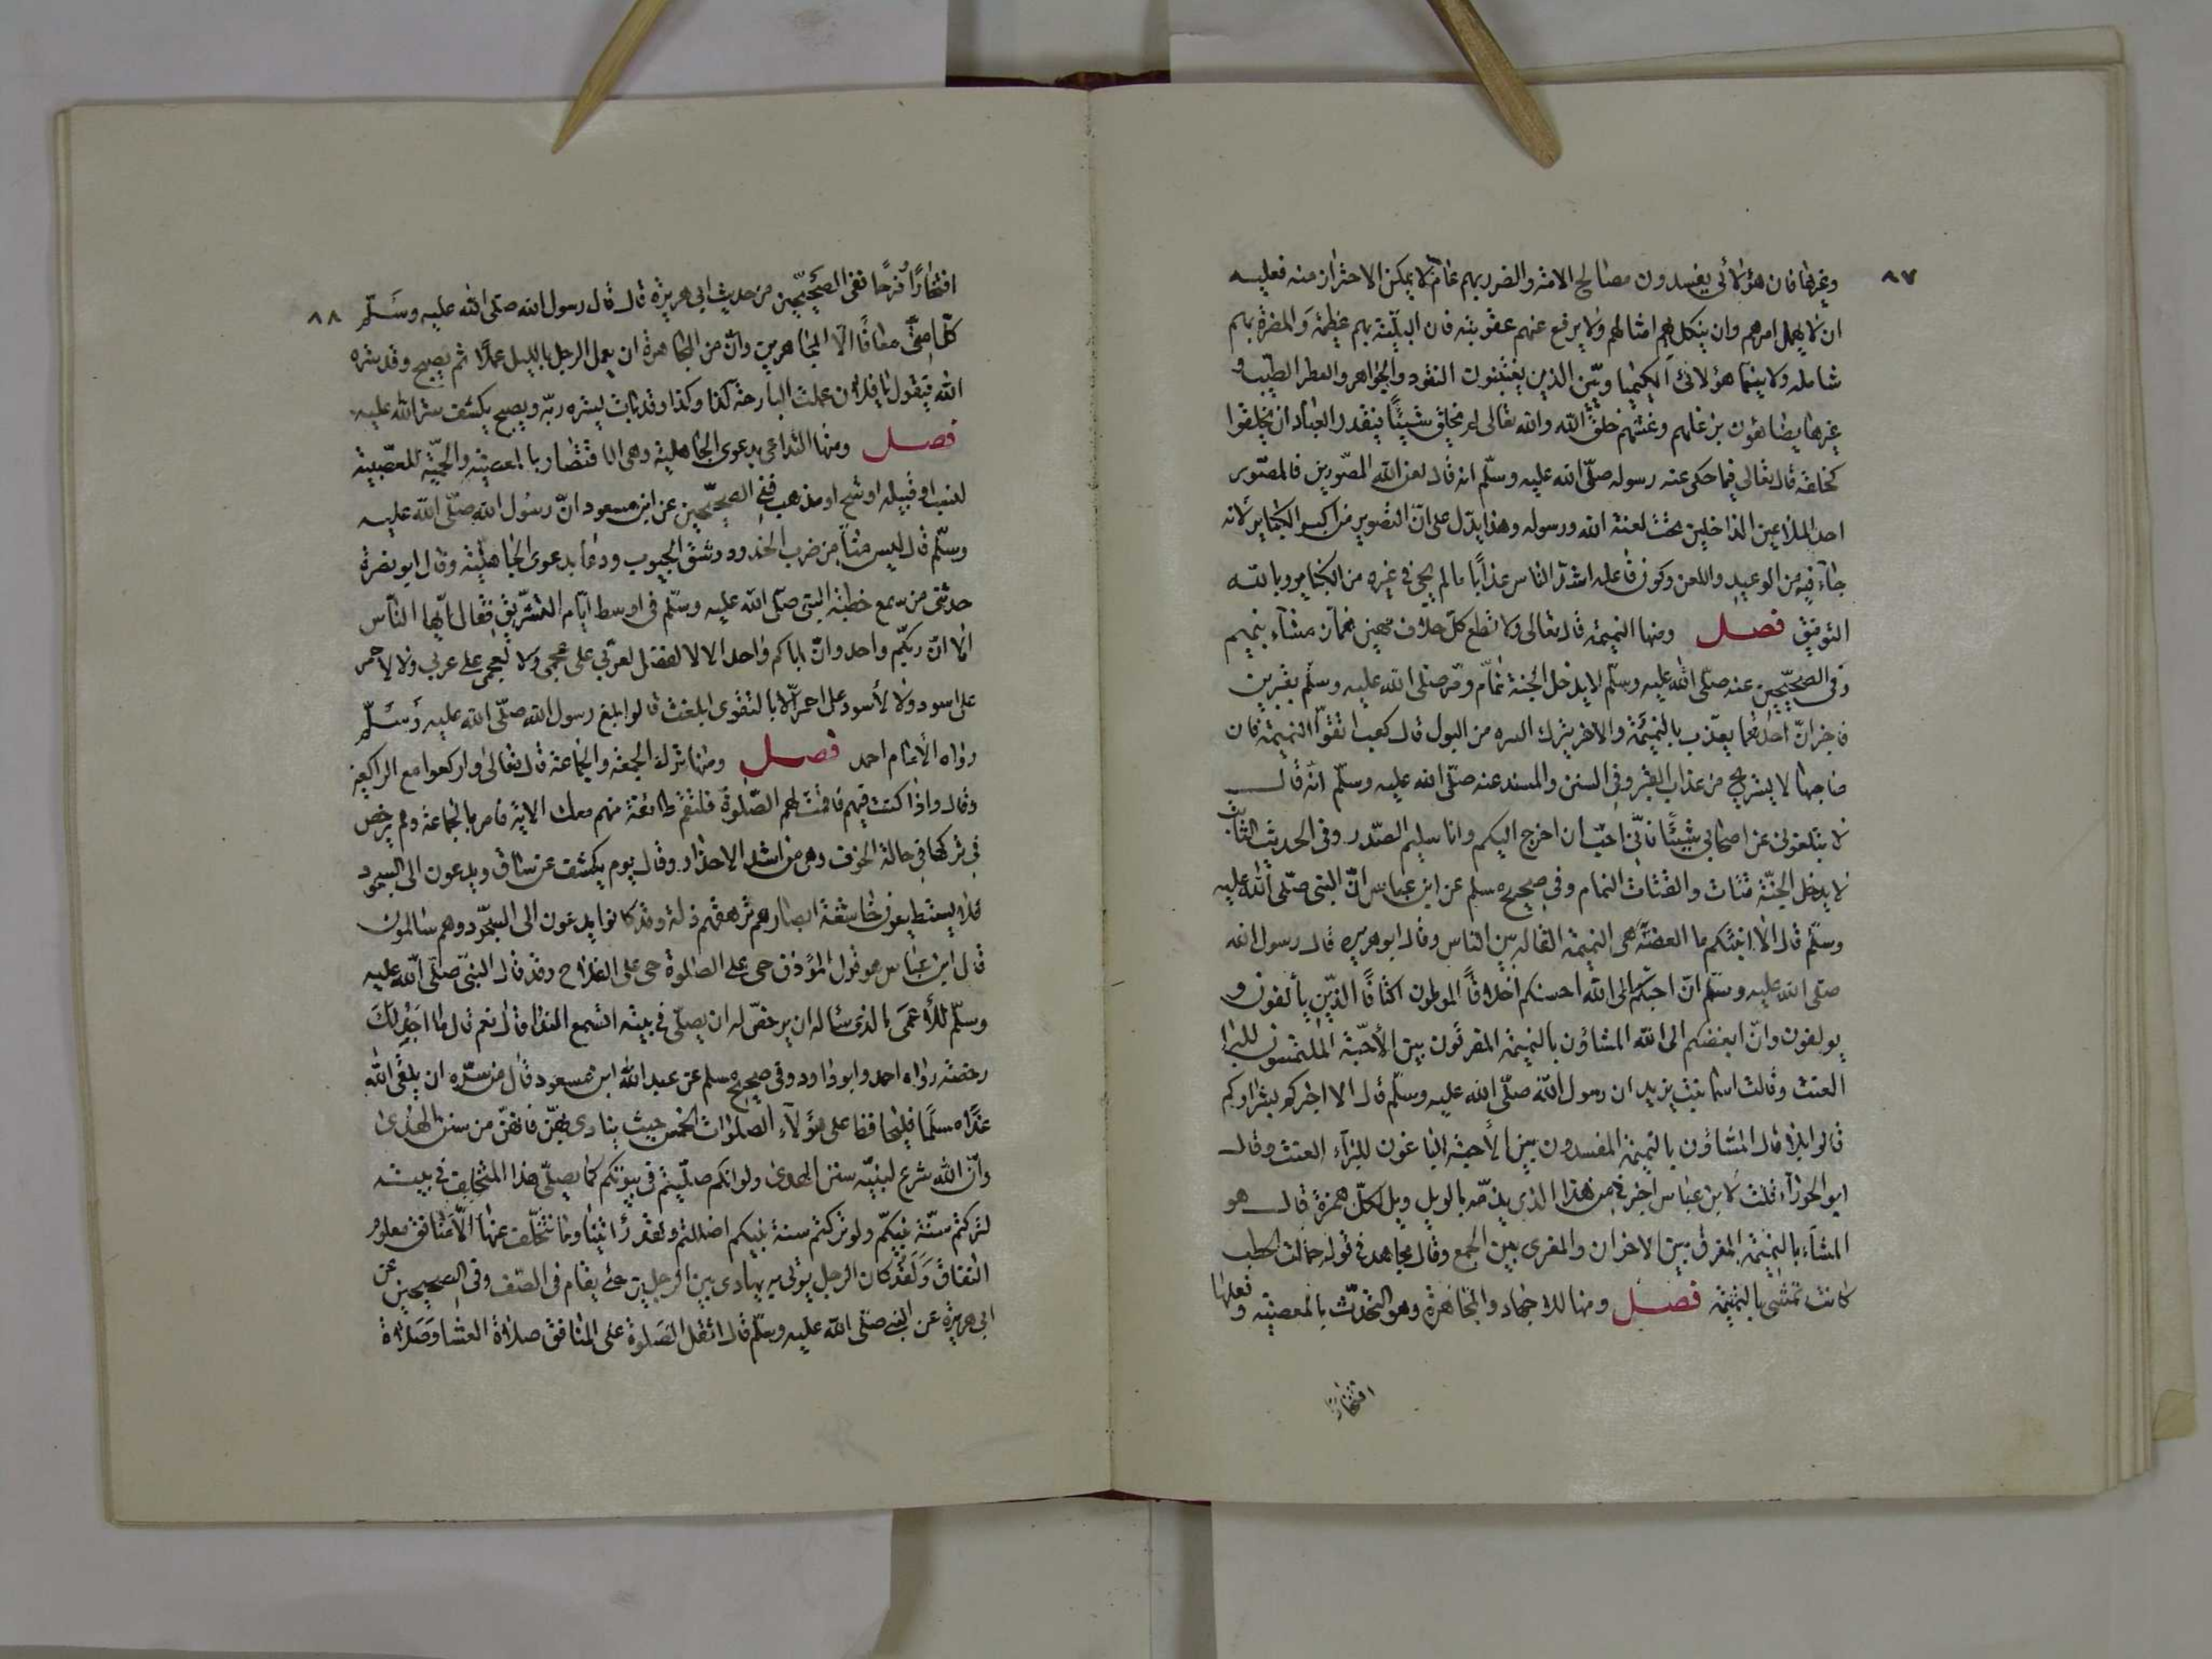 ٨٧
وغيرها فان هؤلائى يفسدون مصالح الامة والضرر بهم عام لا يمكن الاحتراز منه فعليه
ان لا يهمل امرهم وان ينكل بهم امثالهم ولا يرفع عنهم عقوبته فان البليّة بهم عظيمة والمضرة بهم
شامله ولا سيما هؤلائى الكيمياويّين الذين يغشون النقود والجواهر والعطر الطيب و
غيرها يضاهؤن بزغلهم وغشهم خلق الله والله تعالى لم يخلق شيئًا فيقدر العباد ان يخلقوا
كخلقه قال تعالى فيما حكى عنه رسوله صلّى الله عليه وسلّم انه قال لعن الله المصّورين فالمصّوير
احد الملاعين الداخلين تحت لعنة الله ورسوله وهذا يدل على انّ التصوير من اكبر الكبائر لانه
جآء فيه من الوعيد واللعن وكون فاعله اشدّ الناس عذابًا ما لم يجئ في غيره من الكبائر وبالله
التوفيق فصل ومنها النميمة قال تعالى ولا تطع كلّ حلّاف مهين همّاز مشآء بنميم
وفى الصحيّحين عنه صلّى الله عليه وسلّم لا يدخل الجنة نمّام ومّر صلى الله عليه وسلّم بقبرين
فاخبر انّ احدهما يعذّب بالنميمة والاخر بترك السره من البول قال كعب اتقوّا النميمة فان
صاحبها لا يستريح من عذاب القبر وفى السنن والمسند عنه صلّى الله عليه وسلّم انّه قال
لا يبلغونى عن اصحابى شيئًا فانّى احبّ ان اخرج اليكم وانا سليم الصّدر وفى الحديث الثابت
لا يدخل الجنّة قتات والقتات النمام وفى صحيح مسلم عن ابن عباس انّ النبى صلّى الله عليه
وسلّم قال الا انبئكم ما العضّة هى النميمة القالة بين الناس وقال ابو هريره قال رسول الله
صلى الله عليه وسلّم انّ احبّكم الى الله احسنكم اخلاقًا الموطون اكنافًا الذّين يألفون و
يولفون وانّ ابغضكم الى الله المشاؤن بالنميمة المفرقون بين الأحبّة الملتمسون للبرا
العنت وقالت اسما بنت يزيد ان رسول الله صلّى الله عليه وسلّم قال الا اخبركم بشراركم
قالوا بلا قال المشاؤن بالنميمة المفسدون بين الأحبة الباغون للبرآء العنت وقال
ابو الجوزآء قلت لابن عباس اخبرنى من هذا الذى يذمّه بالويل ويل لكلّ همزة قال هو
المشآء بالنميمة المفرق بين الاخوان والمغرى بين الجمع وقال مجاهد فى قوله حمالة الحطب
كانت تمشى بالنميمة فصل ومنها الاجهاد والمجاهرة وهو التحدّث بالمعصية وفعلها
افتخارًا
٨٨
افتخارًا وفرحًا ففى الصّحيّحين من حديث ابى هريرة قال قال رسول الله صلى الله عليه وسَلّم
كلّ امتى معافًا الّا المجاهرين وانّ من المجاهرة ان يعمل الرجل بالليل عملًا ثم يصبح وقد ستره
الله فيقول يا فلان عملت البارحة كذا وكذا وقد بات يستره ربّه ويصبح يكشف ستر الله عليه
فصل ومنها التداعى بدعوى الجاهلية وهى الانتصار بالعصبيّة والحميّة للعصّبية
لنسب او قبيله او شيخ او مذهب ففى الصحيّحين عن ابن مسعود انّ رسُول الله صلّى الله عليه
وسلّم قال ليس منّا من ضرب الخدود وشق الجيوب ودعا بدعوى الجاهليّة وقال ابو نضرة
حدثنى من سمع خطبة النبى صلى الله عليه وسلّم فى اوسط ايّام التّشريق فقال يا ايّها النّاس
الا انّ ربكّم واحد وانّ اباكم واحد الا لا لفضل لعربّى على عجمى ولا لعجمى على عربى ولا لاحمر
على اسود ولا لأسود على احمر الّا بالتقوى ابلغت قالوا بلغ رسول الله صلّى الله عليه وَسَلّم
رواه الأمام احمد فصل ومنها ترك الجمعة والجماعة قال تعالى واركعوا مع الراكعين
وقال واذا كنت فيهم فاقمت لهم الصّلوة فلتقم طائفة منهم معك الاية فامر بالجماعة ولم يرخص
فى تركها فى حالة الخوف وهى من اشد الاحذار وقال يوم يكشف عن ساق ويدعون الى السجود
فلا يستطيعون خاشعة ابصارهم ترهقهم ذلة وقد كانوا يدعون الى السجّود وهم سالمون
قال ابن عباس هو قول المؤذن حى على الصلوة حى على الفلاح وقد قال النبىّ صلّى الله عليه
وسلّم للأعمَى الذى سئاله ان يرخصّ له ان يصلّى فى بيته اتسمع الندا قال نعم قال ما اجد لك
رخصة رواه احمد وابو داود وفى صحيح مسلم عن عبد الله ابن مسعود قال من سرّه ان يلقى الله
غدًا مسلمًا فليحافظ على هؤلآء الصلوات الخمس حيث ينادى بهنّ فانهنّ من سنن الهدى
وانّ الله شرع لنبيّه سنن الهدى ولو انكم صلّيتم فى بيوتكم كما يصلّى هذا المتخلف فى بيته
لتركتم سنّة نبيكّم ولو تركتم سنة نبيكم لضللتم ولقد رأيتنا وما يتخلّف عنها الّا منافق معلوم
النفاق وَلَقَد كان الرجل يؤتى به يهادى بين الرجلين حتى يقام فى الصّف وفى الصحيحين عن
ابى هريرة عن النبى صلّى الله عليه وسلّم قال اثقل الصَلوة على المنافق صلاة العشا وَصَلاة